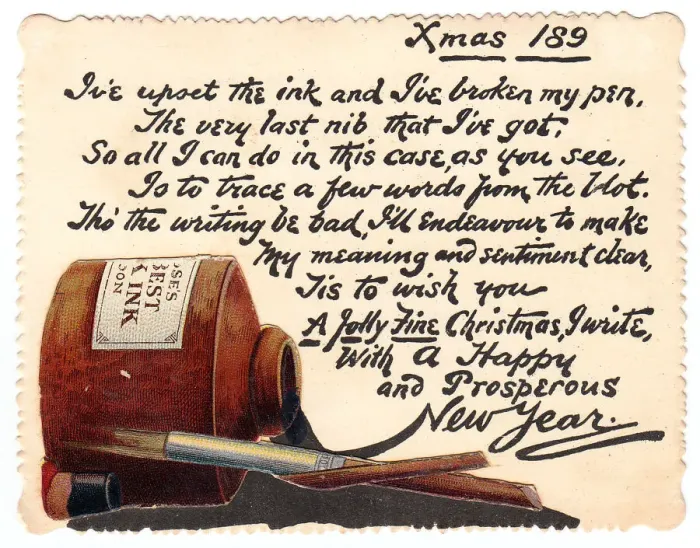 Xmas 189
I've upset the ink and I've broken my pen,
The very last nib that I've got;
So all I can do in this case, as you see,
Is to trace a few words from the blot.
Tho' the writing be bad, I'll endeavour to make
My meaning and sentiment clear,
Tis to wish you
A Jolly Fine Christmas, I write,
With A Happy
and Prosperous
New Year.
OSE'S
BEST
K INK
DON